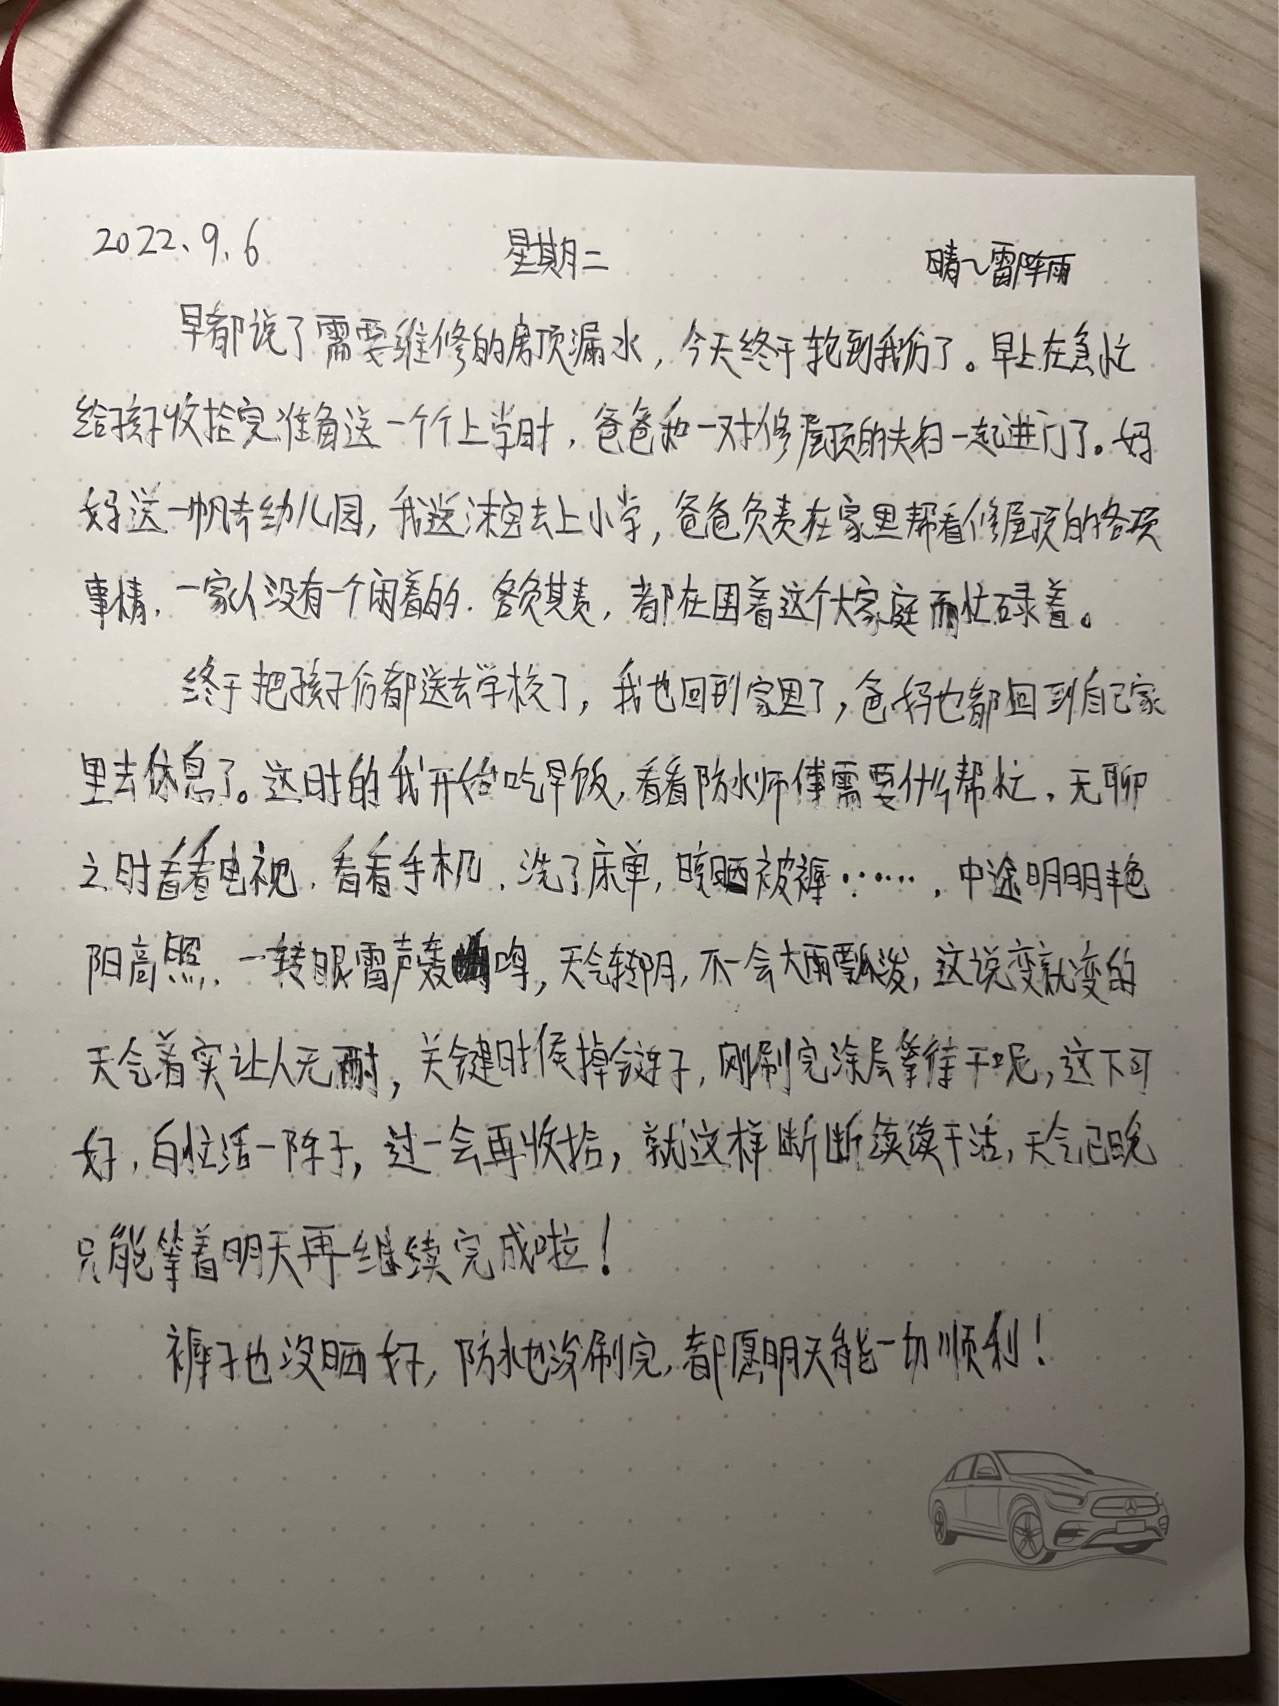 2022.9.6 星期二 晴~雷阵雨
早都说了需要维修的房顶漏水，今天终于轮到我们了。早上在急忙
给孩子收拾完准备送一个个上学时，爸爸和一对修屋顶的夫妇一起进门了。妈
妈送一帆去幼儿园，我送沫宝去上小学，爸爸负责在家里帮看修屋顶的各项
事情，一家人没有一个闲着的，各负其责，都在围着这个大家庭而忙碌着。
终于把孩子们都送去学校了，我也回到家里了，爸妈也都回到自己家
里去休息了。这时的我开始吃早饭，看看防水师傅需要什么帮忙，无聊
之时看看电视，看看手机，洗了床单，晾晒被褥……，中途明明艳
阳高照，一转眼雷声轰鸣，天气转阴，不一会大雨瓢泼，这说变就变的
天气着实让人无耐，关键时侯掉链子，刚刷完涂层等待干呢，这下可
好，白忙活一阵子，过一会再收拾，就这样断断续续干活，天气已晚
只能等着明天再继续完成啦！
褥子也没晒好，防水也没刷完，都愿明天能一切顺利！